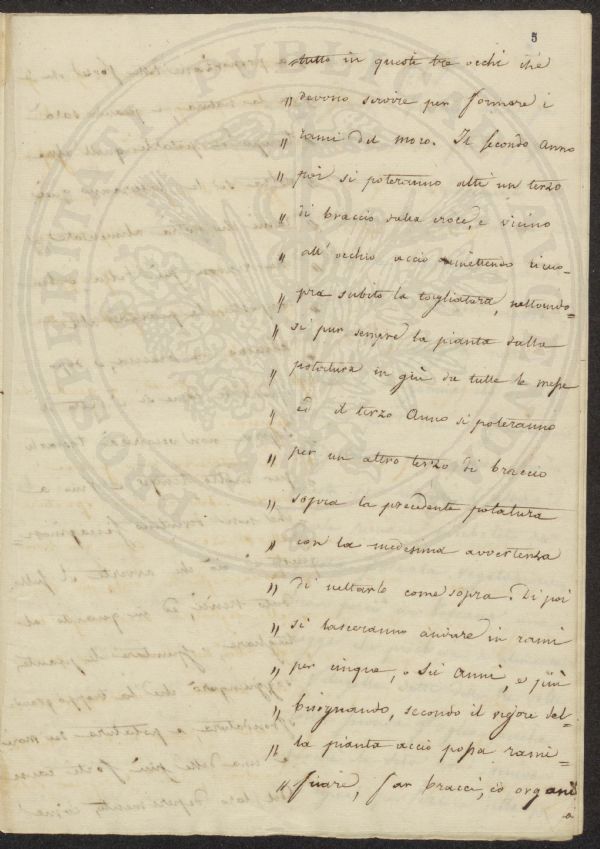 5
tutto in questi tre occhi che
" devono servire per formare i
" rami del moro. Il secondo Anno
" poi si poteranno alti un terzo
" di braccio sulla croce, e vicino
" all' occhio acciò rimettendo ricuo-
" pra subito la togliatura, nettando=
" si pur sempre la pianta dalla
" potatura in giù da tutte le messe
" Ed il terzo Anno si poteranno
" per un altro terzo di braccio
" sopra la precedente potatura
" con la medesima avvertenza
" di nettarle come sopra. Di poi
" si lasceranno andare in rami
" per cinque, o sei anni, e più
" bisognando, secondo il vigore del-
" la pianta acciò possa rami-
" ficare, far bracci, ed organi